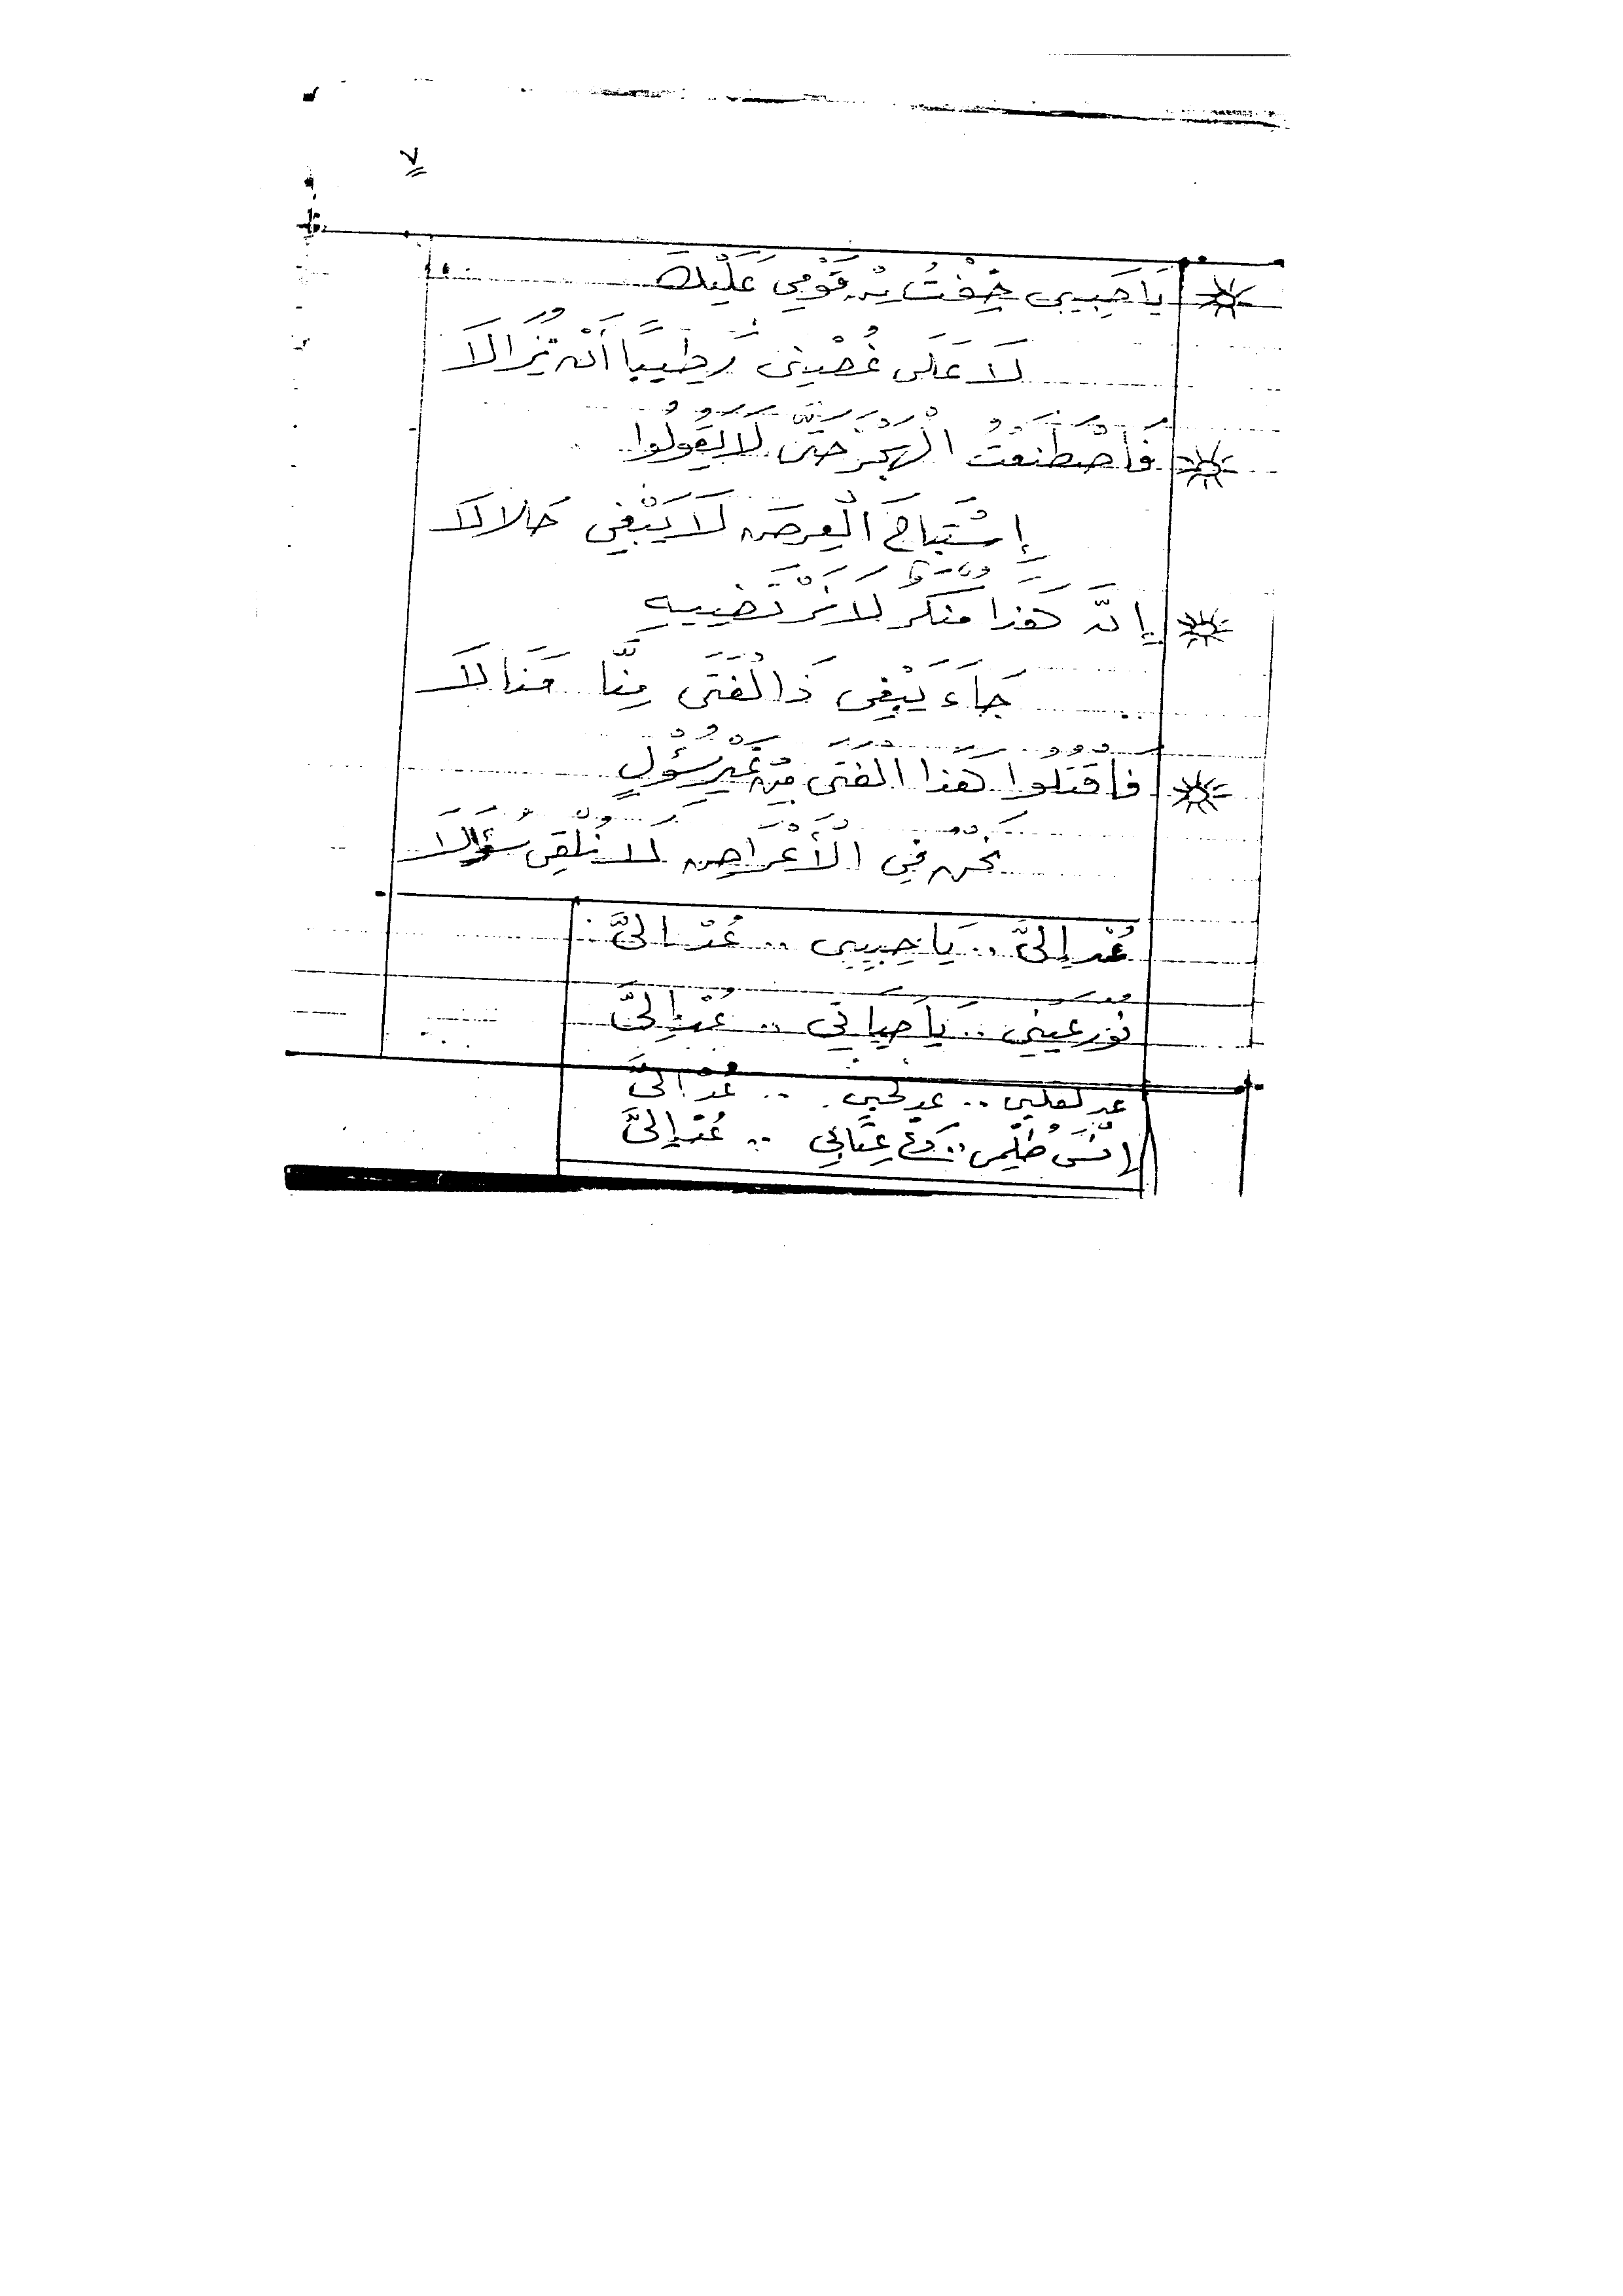 ٧
يَا حَبِيبِى خِفْتُ مِنْ قَوْمِي عَلَيْكَ
لَا عَلَى غُصْنِى رَطِيبًا أَنْ يُزَالَا
فَاصْطَنَعْتُ الْهَجْرَ حَتَّى لَا يَقُولُوا
إِسْتَبَاحَ الْعِرضَ لَا يَبْغِي حَلالَا
إِنَّ هَذَا مُنْكَرٌ لَا نَرْتَضِيهِ
جَاءَ يَبْغِى ذَا الْفَتَى مِنَّا مَنَالَا
فَاقْتُلُوا هَذَا الْفَتَى مِنْ غَيْرِ سُؤْلٍ
نَحْنُ فِي الْأَعْرَاضِ لَا نُلْقِى سُؤَالَا
عُدْ إِلَىَّ .. يَا حَبِيبِى .. عُدْ إلَىَّ
نُورَ عَيْنِي .. يَا حَيَاتِي .. عُدْ إِلَىَّ
عد لقلبي .. عد لحبي .. عُدْ إلَىَّ
إنْسَ ظُلْمِى .. دَعْ عِتَابِي .. عُدْ إِلَىَّ